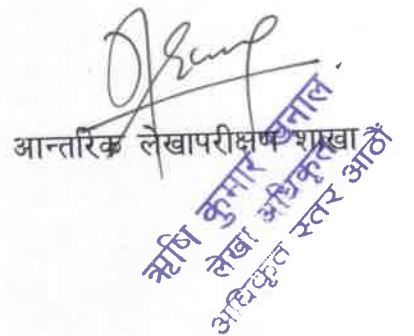 आन्तरिक लेखापरीक्षण शाखा
ऋषि कुमार खनाल
लेखा अधिकृत
अधिकृत स्तर आठौं